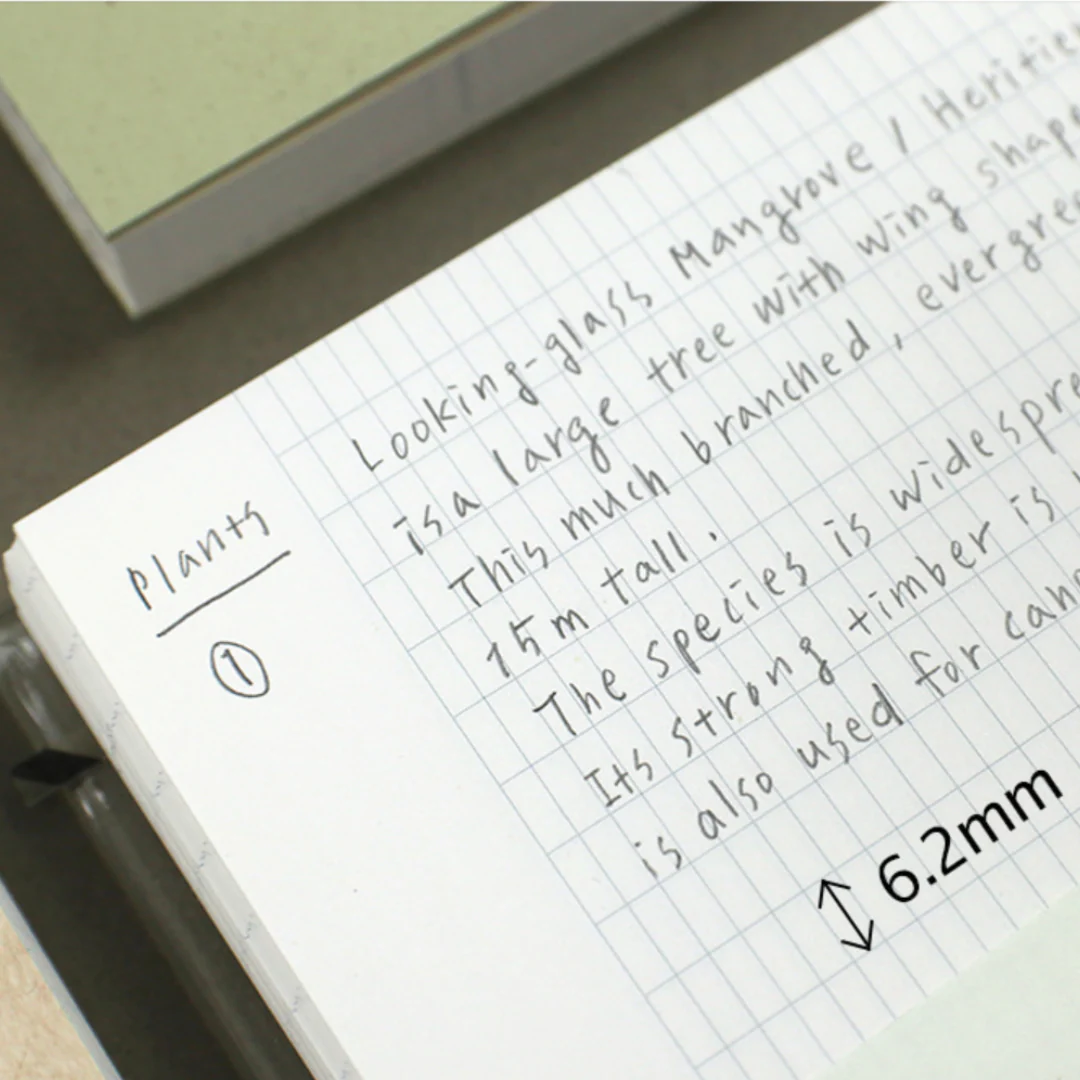 Plants
①
Looking-glass Mangrove / Heritier
is a large tree with wing shape
This much branched, evergree
15m tall.
The species is widespre
Its strong timber is
is also used for can
6.2mm